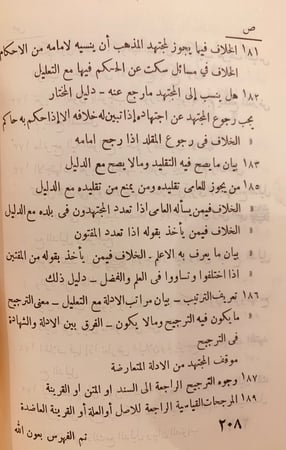 ص
١٨١ الخلاف فيما يجوز لمجتهد المذهب أن ينسبه لامامه من الاحكام
الخلاف في مسائل سكت عن الحكم فيها مع التعليل
١٨٢ هل ينسب إلى المجتهد مارجع عنه - دليل المختار
يجب رجوع المجتهد عن اجتهاده إذا تبين له خلافه إلا إذا حكم به حاكم
» الخلاف في رجوع المقلد اذا رجع امامه
١٨٣ بيان ما يصح فيه التقليد وما لا يصح مع الدليل
١٨٥ من يجوز للعامى تقليده ومن يمنع من تقليده مع الدليل
» الخلاف فيمن يسأله العامى اذا تعدد المجتهدون فى بلده مع الدليل
» الخلاف فيمن يأخذ بقوله اذا تعدد المفتون
» بيان ما يعرف به الاعلم - الخلاف فيمن يأخذ بقوله من المفتين
اذا اختلفوا وتساووا فى العلم والفضل - دليل ذلك
١٨٦ تعريف الترتيب - بيان مراتب الادلة مع التعليل - معنى الترجيح
» ما يكون فيه الترجيح وما لا يكون - الفرق بين الادلة والشهادة
فى الترجيح
موقف المجتهد من الادلة المتعارضة
١٨٧ وجوه الترجيح الراجعة الى السند او المتن او القرينة
١٨٩ المرجحات القياسية الراجعة للاصل أو العلة أو القرينة العاضدة
٢٠٨
تم الفهرس بعون الله